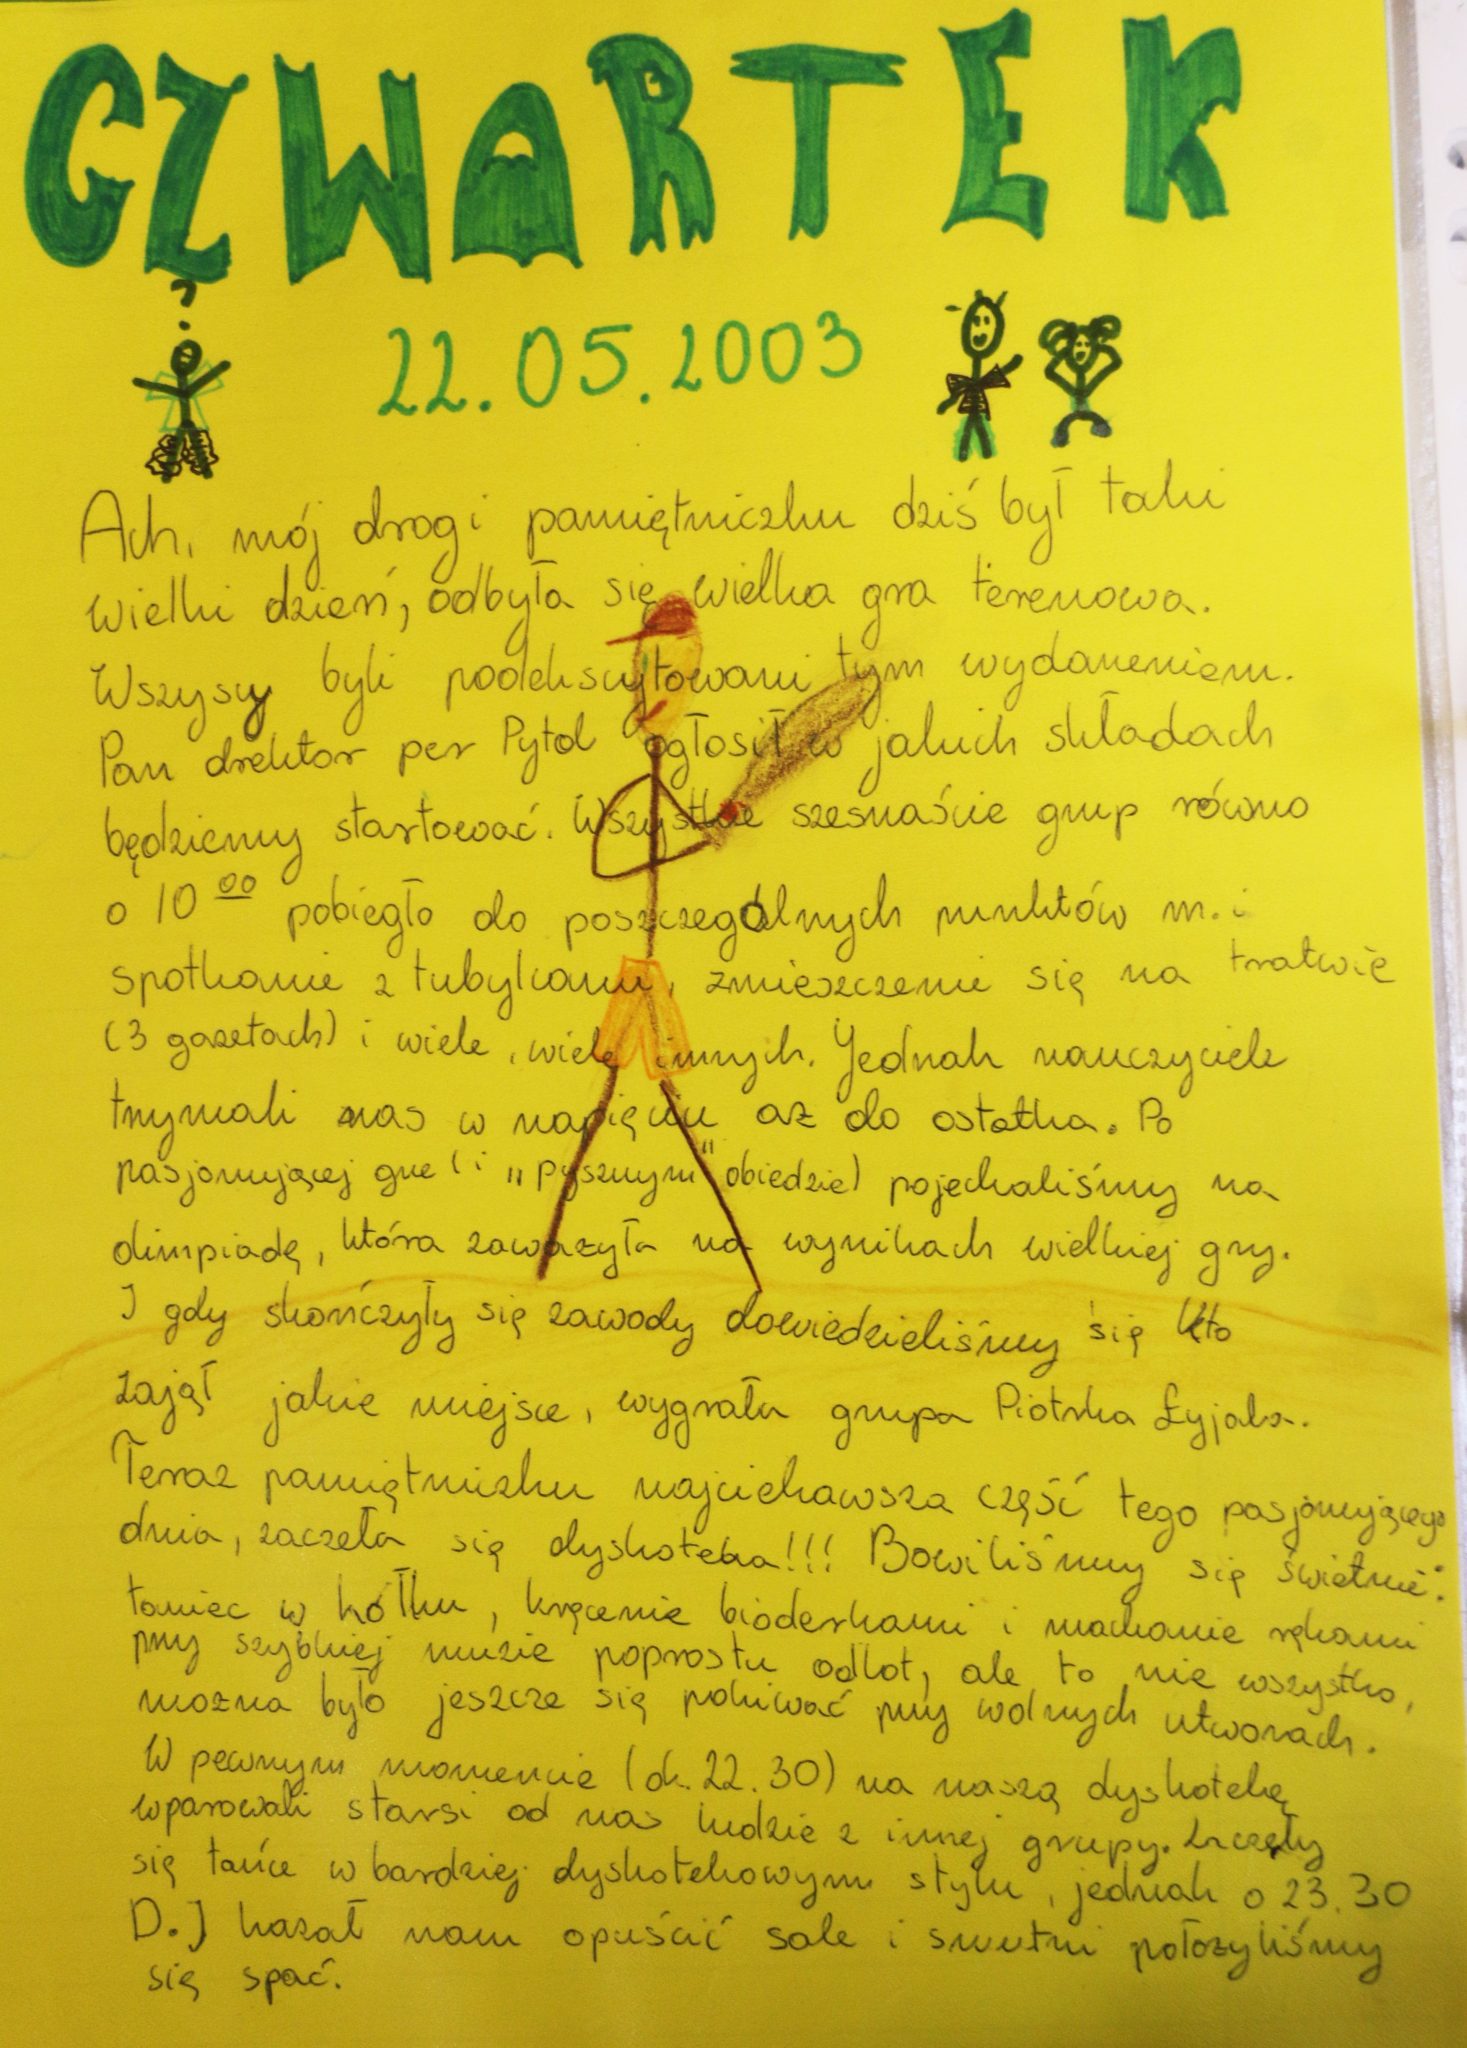 CZWARTEK
?
22.05.2003
Ach, mój drogi pamiętniczku dziś był taki
wielki dzień, odbyła się wielka gra terenowa.
Wszyscy byli podekscytowani tym wydaneniem.
Pan drektor per Pytol ogłosił w jakich składach
będziemy startować. Wszystkie szesnaście grup równo
o 10 00 pobiegło do poszczególnych punktów m.i
spotkanie z tubylcami, zmieszczenie się na tratwie
(3 gazetach) i wiele, wiele innych. Jednak nauczyciele
trzymali nas w napięciu aż do ostatka. Po
pasjonującej grze (i „pysznym" obiedzie) pojechaliśmy na
olimpiadę, która zaważyła na wynikach wielkiej gry.
I gdy skończyły się zawody dowiedzieliśmy się kto
zajął jakie miejsce, wygrała grupa Piotrka Łyjaka.
Teraz pamiętniczku najciekawsza część tego pasjonującego
dnia, zaczeła się dyskoteka!!! Bawiliśmy się świetnie:
taniec w kółku, kręcenie bioderkami i machanie rękami
przy szybkiej muzie poprostu odlot, ale to nie wszystko,
można było jeszcze się pokiwać przy wolnych utworach.
W pewnym momencie (ok. 22.30) na naszą dyskotekę
wparowali starsi od nas ludzie z innej grupy. Zaczęły
się tańce w bardziej dyskotekowym stylu, jednak o 23.30
D.J kazał nam opuścić sale i smutni położyliśmy
się spać.